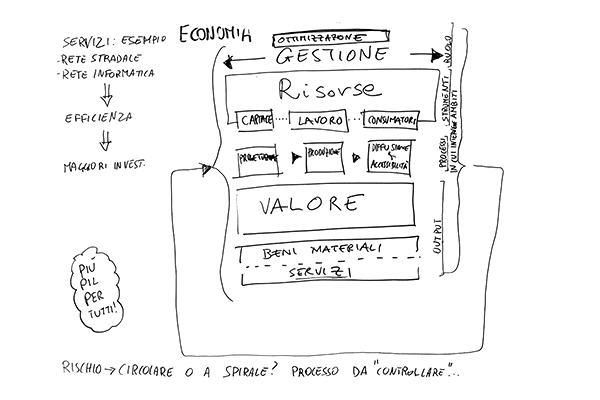 ECONOMIA
SERVIZI: ESEMPIO
-RETE STRADALE
-RETE INFORMATICA
EFFICIENZA
MAGGIORI INVEST.
OTTIMIZZAZIONE
GESTIONE
RISORSE
CAPITALE ... LAVORO ... CONSUMATORI
PROGETTAZIONE
PRODUZIONE
DIFFUSIONE
E
ACCESSIBILITÀ
VALORE
BENI MATERIALI
SERVIZI
RUOLO
STRUMENTI
PROCESSI
IN CUI INTERVIENE
AMBITI
OUTPUT
PIÙ
PIL
PER
TUTTI!
RISCHIO → CIRCOLARE O A SPIRALE? PROCESSO DA "CONTROLLARE"...